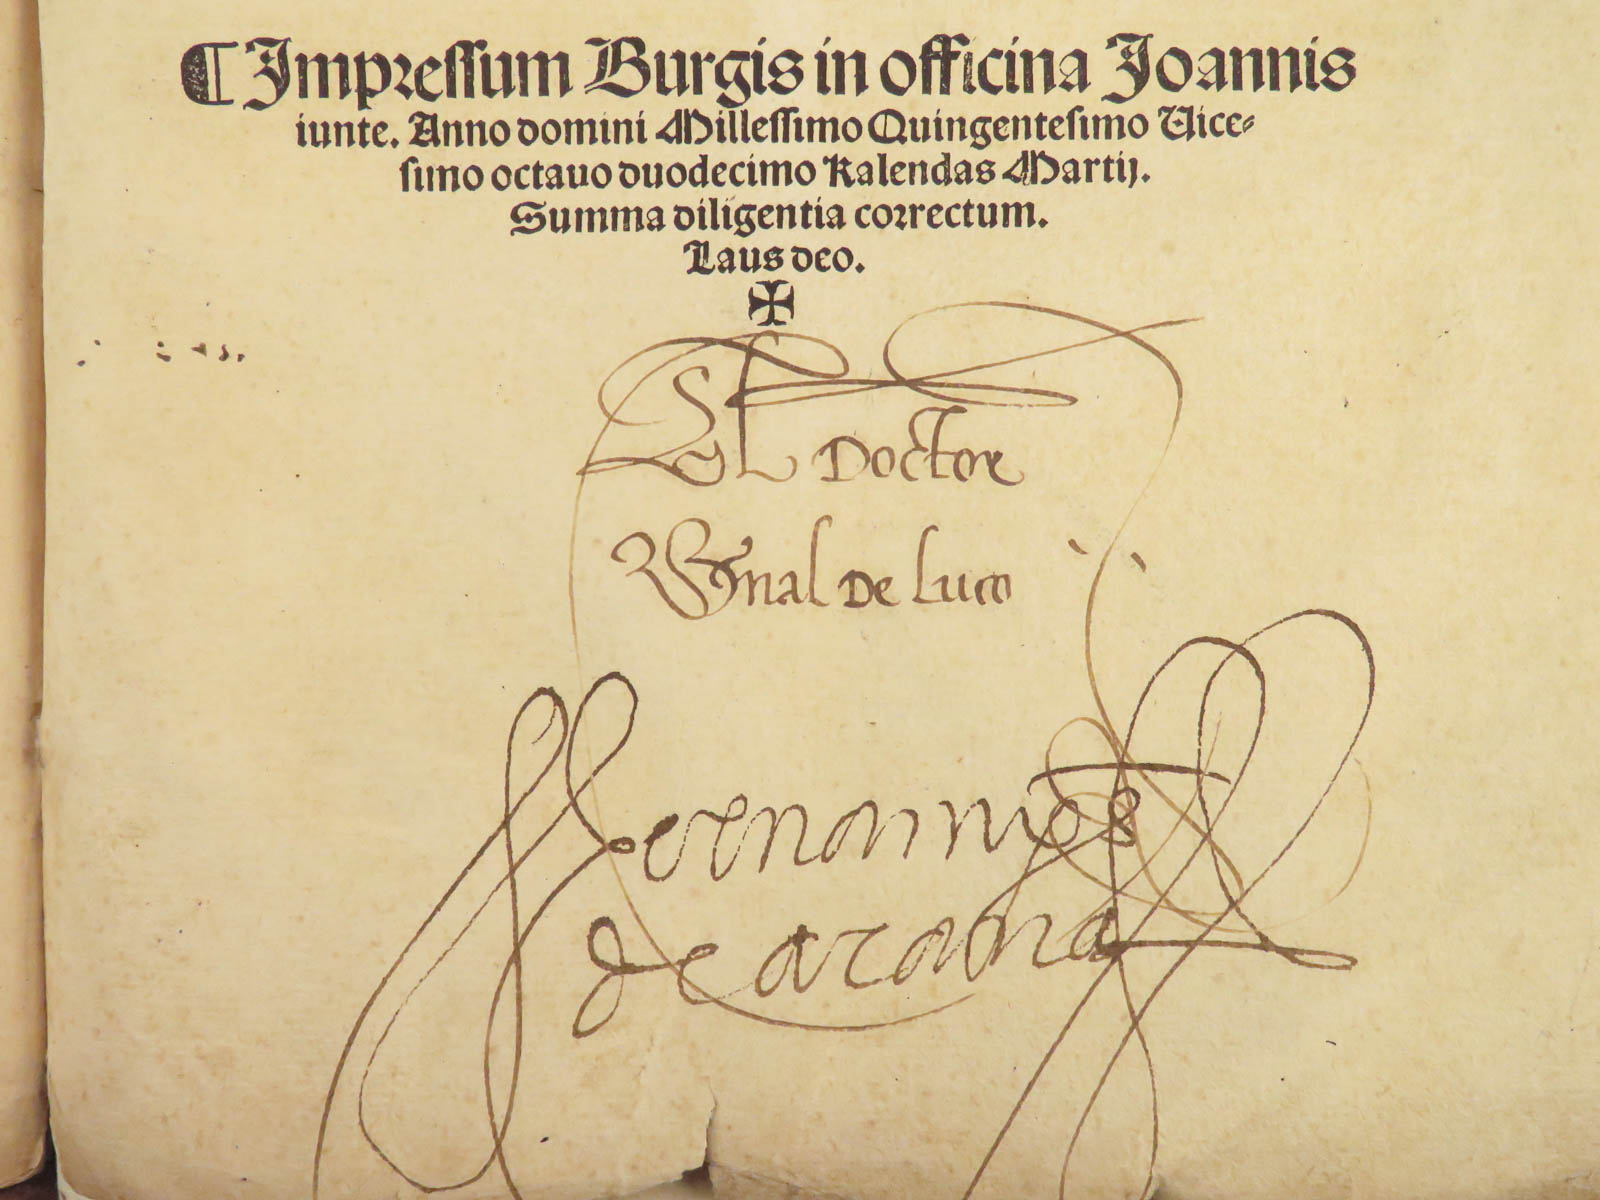 ¶ Impressum Burgis in officina Joannis
iunte. Anno domini Millessimo Quingentesimo Vice-
simo octauo duodecimo Kalendas Martij.
Summa diligentia correctum.
Laus deo.
✠
El Doctor
Bnal de luco
de arana